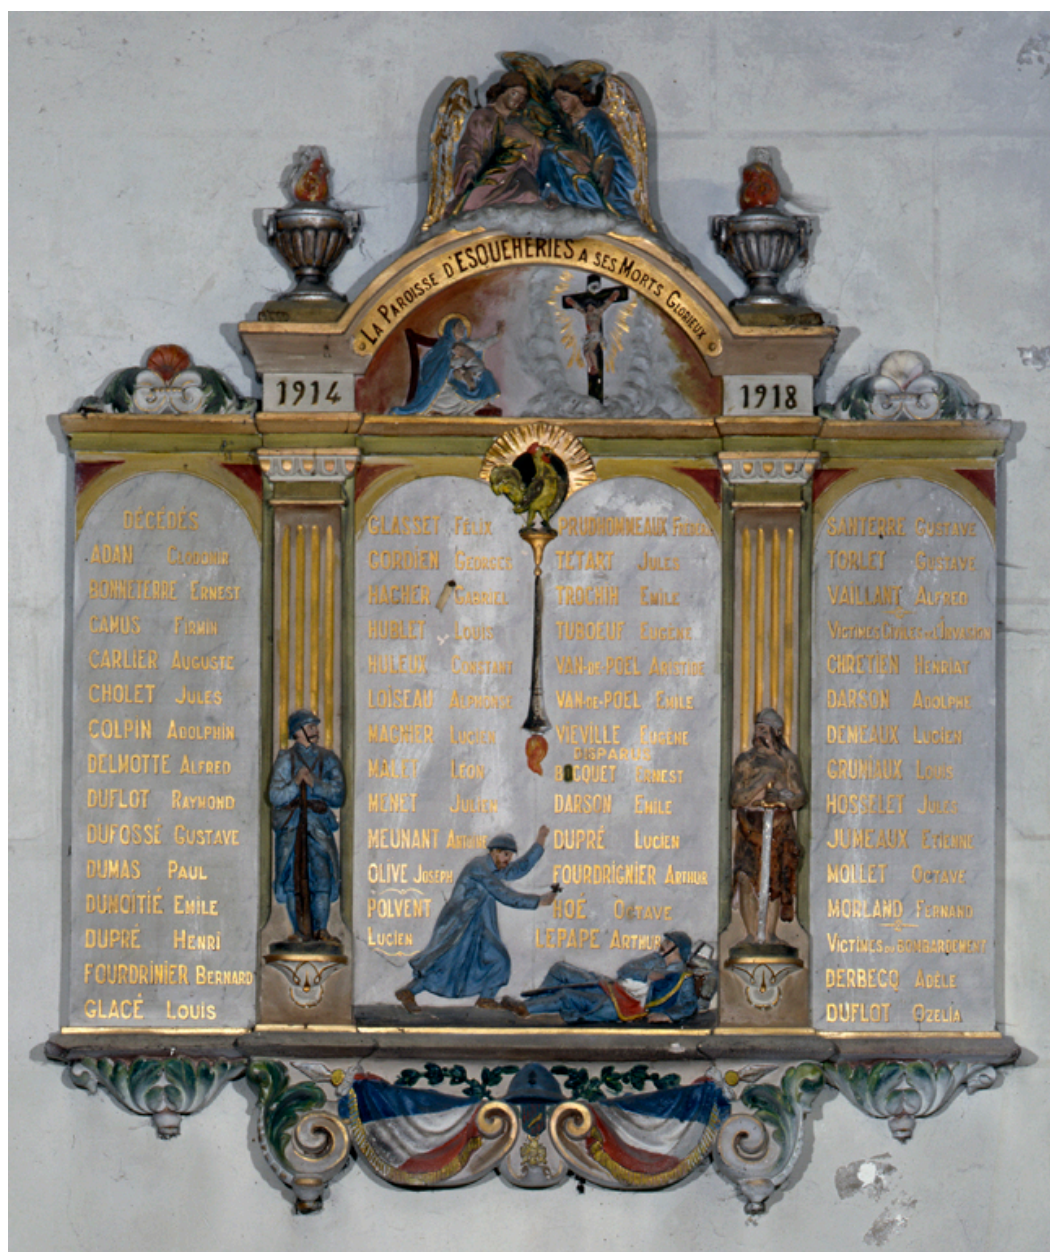 LA PAROISSE D'ESQUEHÉRIES A SES MORTS GLORIEUX
1914
1918
DÉCÉDÉS
ADAN CLODOMIR
BONNETERRE ERNEST
CAMUS FIRMIN
CARLIER AUGUSTE
CHOLET JULES
COLPIN ADOLPHIN
DELMOTTE ALFRED
DUFLOT RAYMOND
DUFOSSÉ GUSTAVE
DUMAS PAUL
DUMOITIÉ EMILE
DUPRÉ HENRI
FOURDRINIER BERNARD
GLACÉ LOUIS
GLASSET FÉLIX
GORDIEN GEORGES
HACHER GABRIEL
HUBLET LOUIS
HULEUX CONSTANT
LOISEAU ALPHONSE
MAGNIER LUCIEN
MALET LÉON
MENET JULIEN
MEUNANT ANTOINE
OLIVE JOSEPH
POLVENT
LUCIEN
PRUDHOMMEAUX
TÉTART JULES
TROCHIN EMILE
TUBOEUF EUGÈNE
VAN-DE-POEL ARISTIDE
VAN-DE-POEL EMILE
VIÉVILLE EUGÈNE
DISPARUS
BOCQUET ERNEST
DARSON EMILE
DUPRÉ LUCIEN
FOURDRIGNIER ARTHUR
HOÉ OCTAVE
LEPAPE ARTHUR
SANTERRE GUSTAVE
TORLET GUSTAVE
VAILLANT ALFRED
VICTIMES CIVILES DE L'INVASION
CHRÉTIEN HENRIAT
DARSON ADOLPHE
DEMEAUX LUCIEN
GRUMIAUX LOUIS
HOSSELET JULES
JUMEAUX ETIENNE
MOLLET OCTAVE
MORLAND FERNAND
VICTIMES DU BOMBARDEMENT
DERBECQ ADÈLE
DUFLOT OZÉLIA